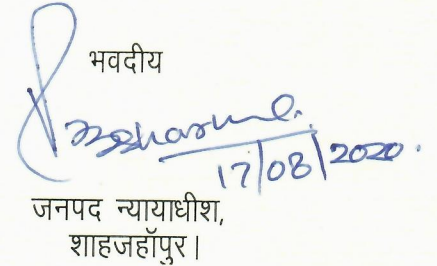 भवदीय
17/08/2020.
जनपद न्यायाधीश,
शाहजहॉपुर।